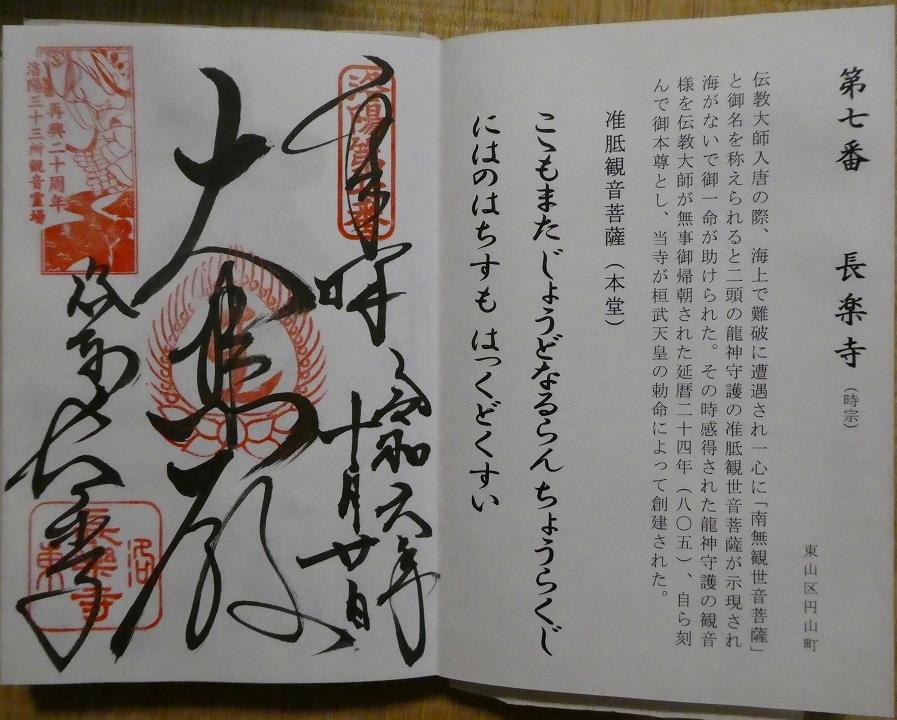 第七番　長楽寺（時宗）
東山区円山町
伝教大師入唐の際、海上で難破に遭遇され一心に「南無観世音菩薩」
と御名を称えられると二頭の龍神守護の准胝観世音菩薩が示現され
海がないで御一命が助けられた。その時感得された龍神守護の観音
様を伝教大師が無事御帰朝された延暦二十四年（八〇五）、自ら刻
んで御本尊とし、当寺が桓武天皇の勅命によって創建された。
准胝観音菩薩（本堂）
こゝもまた じょうどなるらん ちょうらくじ
にはのはちすも はっくどくすい
奉拝
令和六年
十月廿日
洛陽第七番
大悲殿
再興二十周年
洛陽三十三所観音霊場
洛東
長樂寺